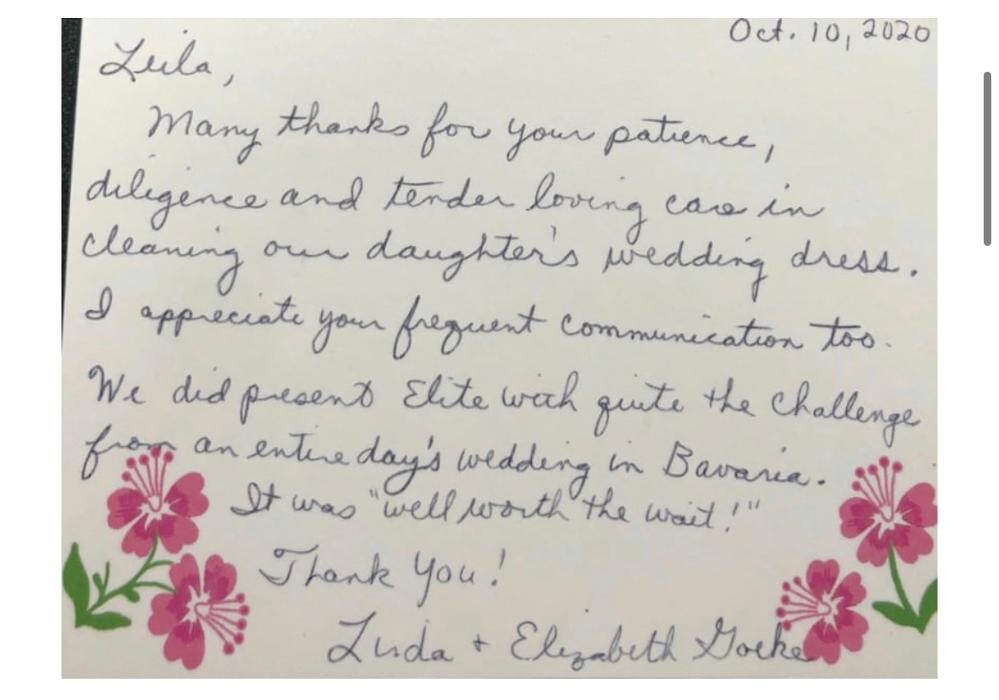 Oct. 10, 2020
Leila,
Many thanks for your patience,
diligence and tender loving care in
cleaning our daughter's wedding dress.
I appreciate your frequent communication too.
We did present Elite with quite the challenge
from an entire day's wedding in Bavaria.
It was "well worth the wait!"
Thank you!
Linda + Elizabeth Goeke